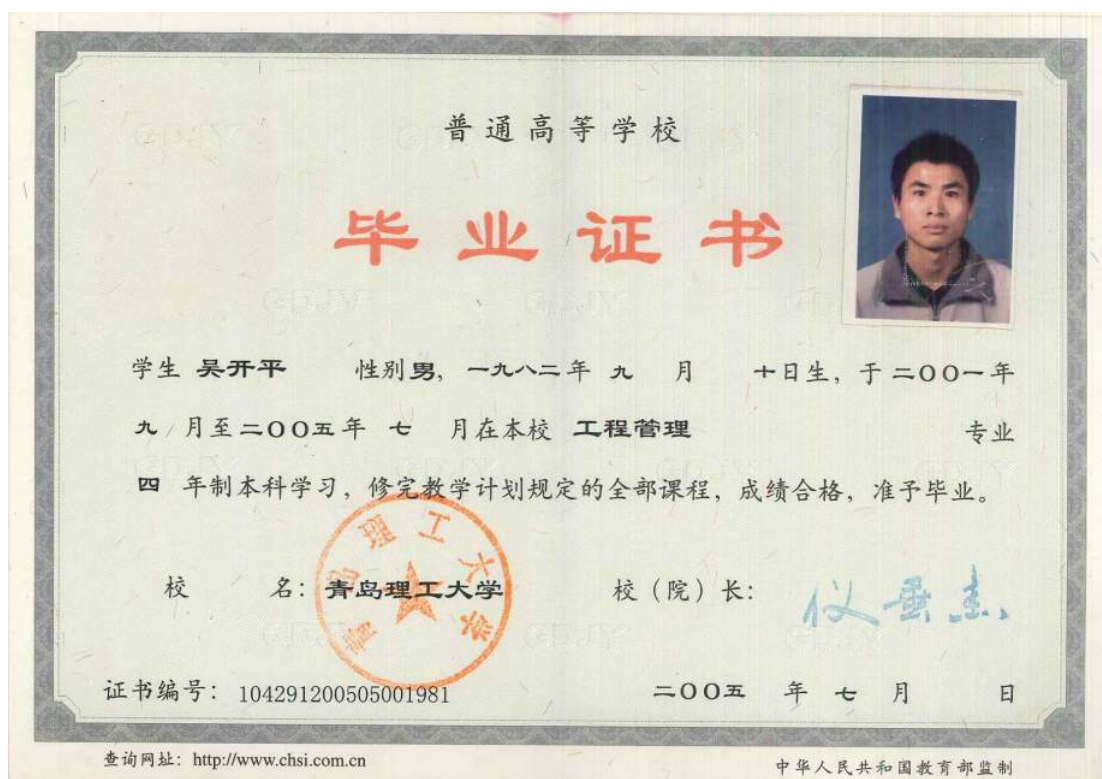 普通高等学校
毕业证书
学生 吴开平 性别男, 一九八二年 九 月 十日生, 于二〇〇一年
九 月至二〇〇五年 七 月在本校 工程管理 专业
四 年制本科学习, 修完教学计划规定的全部课程, 成绩合格, 准予毕业。
校 名: 青岛理工大学 校（院）长: 仪垂杰
青岛理工大学
证书编号: 104291200505001981 二〇〇五 年 七 月 日
查询网址: http://www.chsi.com.cn 中华人民共和国教育部监制